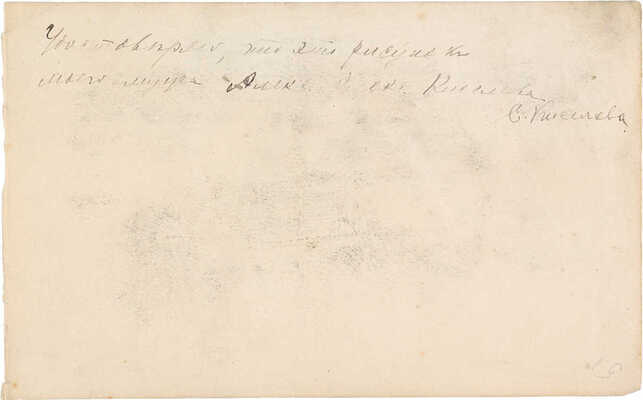 Удостоверяю, что это рисунок
моего мужа Александра Киселева
С. Киселева